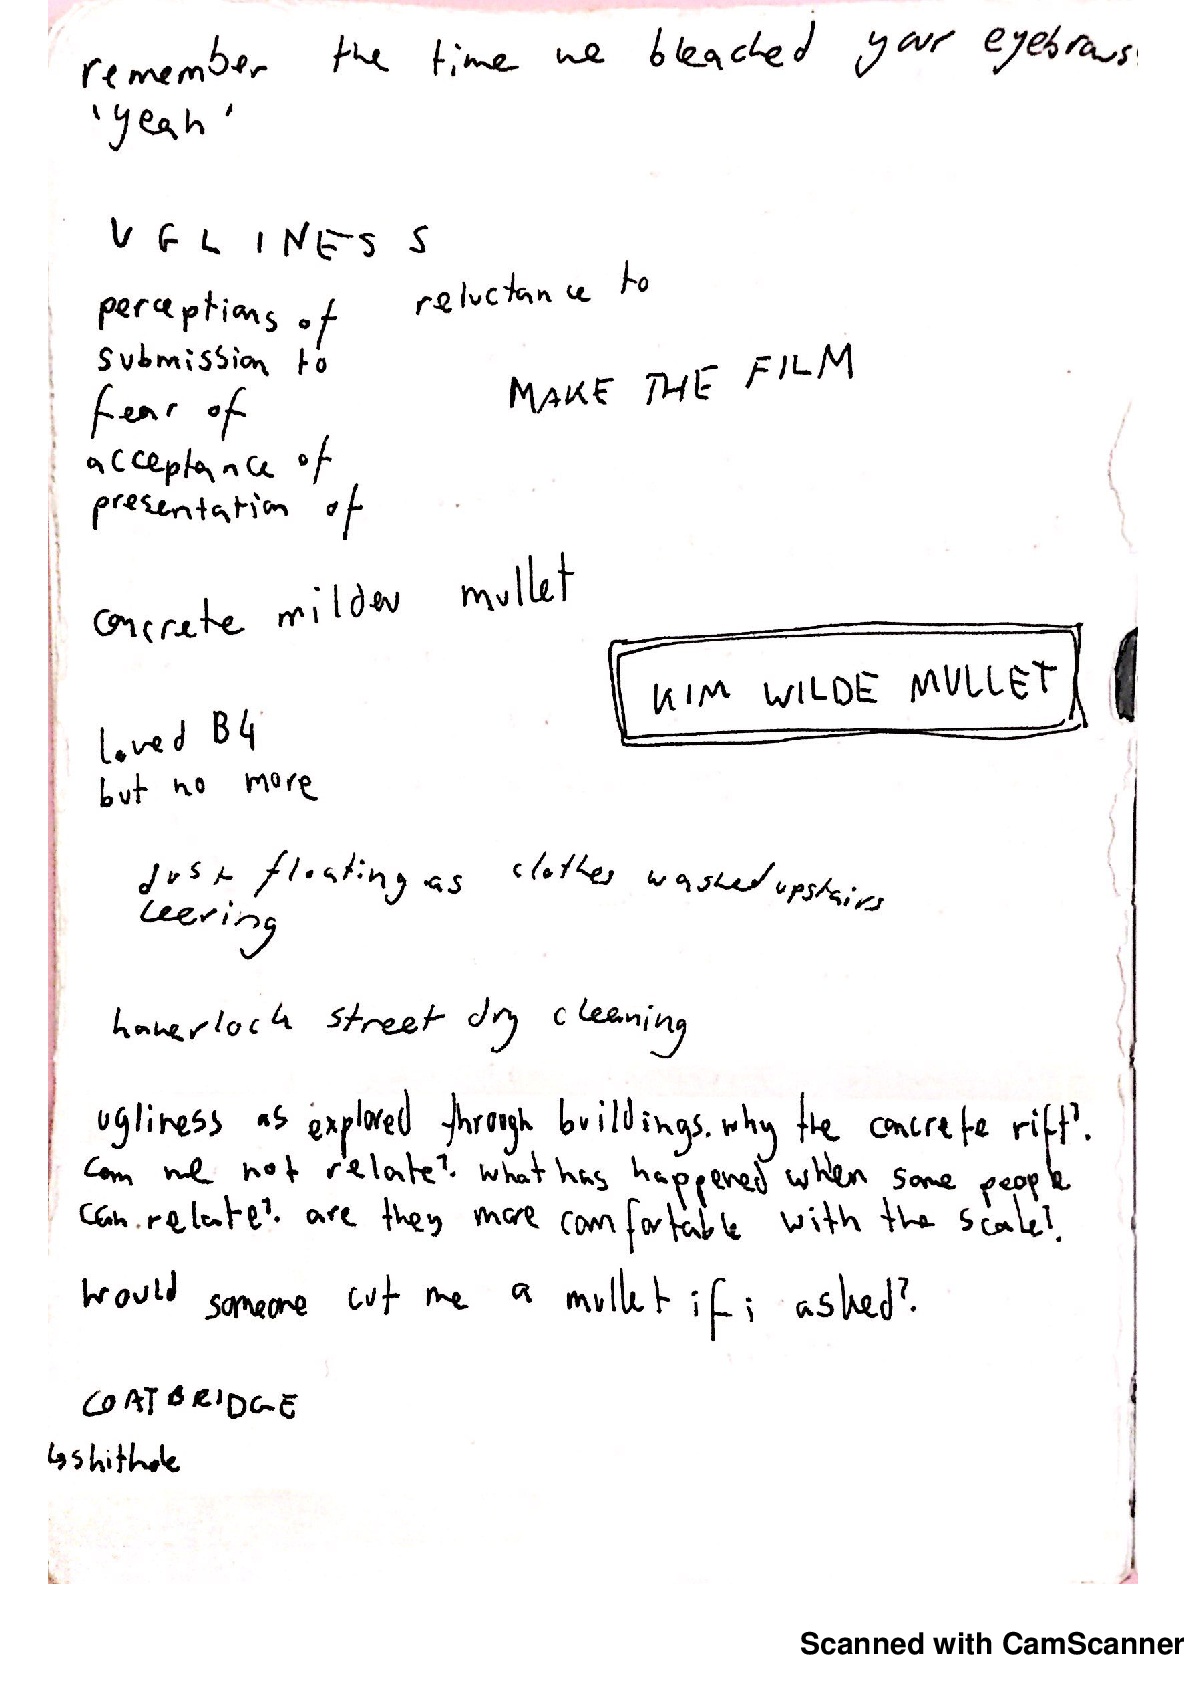 remember the time we bleached your eyebrows
'yeah'
UGLINESS
perceptions of reluctance to
submission to
fear of
MAKE THE FILM
acceptance of
presentation of
concrete mildew mullet
KIM WILDE MULLET
loved B4
but no more
dust floating as clothes washed upstairs
leering
haverloch street dry cleaning
ugliness as explored through buildings. why the concrete rift?.
can we not relate?. what has happened when some people
can relate?. are they more comfortable with the scale?.
would someone cut me a mullet if i asked?.
COATBRIDGE
↳shithole
Scanned with CamScanner